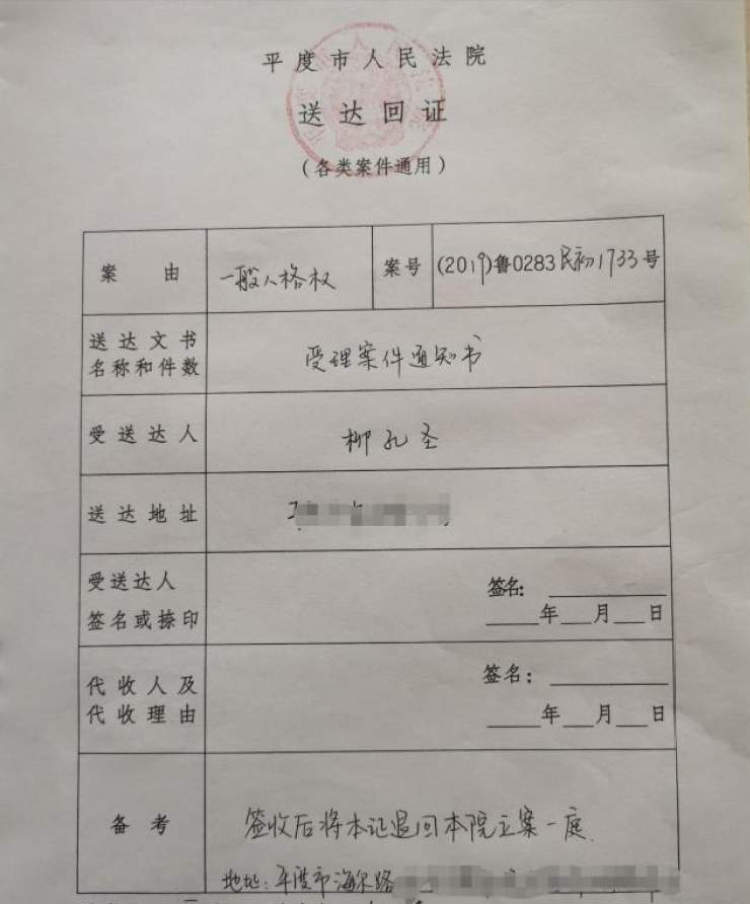 平度市人民法院
送达回证
(各类案件通用)
案由
一般人格权
案号
(2019)鲁0283民初1733号
送达文书
名称和件数
受理案件通知书
受送达人
柳孔圣
送达地址
受送达人
签名或捺印
签名:
年 月 日
代收人及
代收理由
签名:
年 月 日
备考
签收后将本证退回本院立案一庭
地址:平度市海尔路